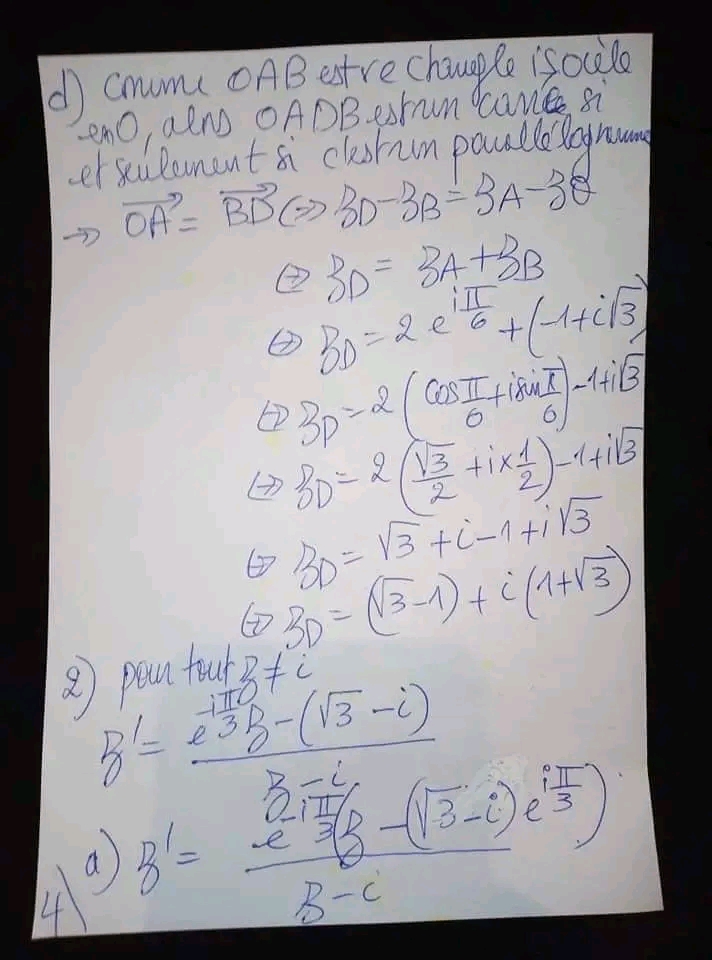 d) comme OAB est rectangle isocèle
en O, alors OADB est un carré si
et seulement si c'est un parallélogramme
→ $\overrightarrow{OA} = \overrightarrow{BD}$ ⇔ z_D - z_B = z_A - z_O
⇔ z_D = z_A + z_B
⇔ z_D = 2 e^{i\frac{π}{6}} + (-1+i√3)
⇔ z_D = 2 (cos \frac{π}{6} + i sin \frac{π}{6}) - 1 + i√3
⇔ z_D = 2 (\frac{√3}{2} + i × \frac{1}{2}) - 1 + i√3
⇔ z_D = √3 + i - 1 + i√3
⇔ z_D = (√3 - 1) + i (1 + √3)
2) pour tout z ≠ i
z' = \frac{e^{-i\frac{π}{3}} z - (√3 - i)}{z - i}
a) z' = \frac{e^{-i\frac{π}{3}} (z - (√3 - i) e^{i\frac{π}{3}})}{z - i}
4)